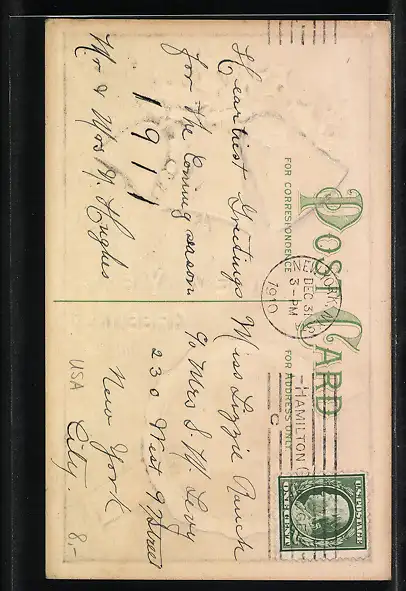 POST CARD
FOR CORRESPONDENCE
FOR ADDRESS ONLY
NEW YORK, N.Y.
DEC 31
3-PM
1910
HAMILTON
C
U.S. POSTAGE
ONE CENT
Heartiest Greetings
for the Coming season
1911
Mr & Mrs N. Hughes
Miss Lizzie Rauch
c/o Mrs S. W. Levy
230 West 9 Street
New York
City.
USA
8,-